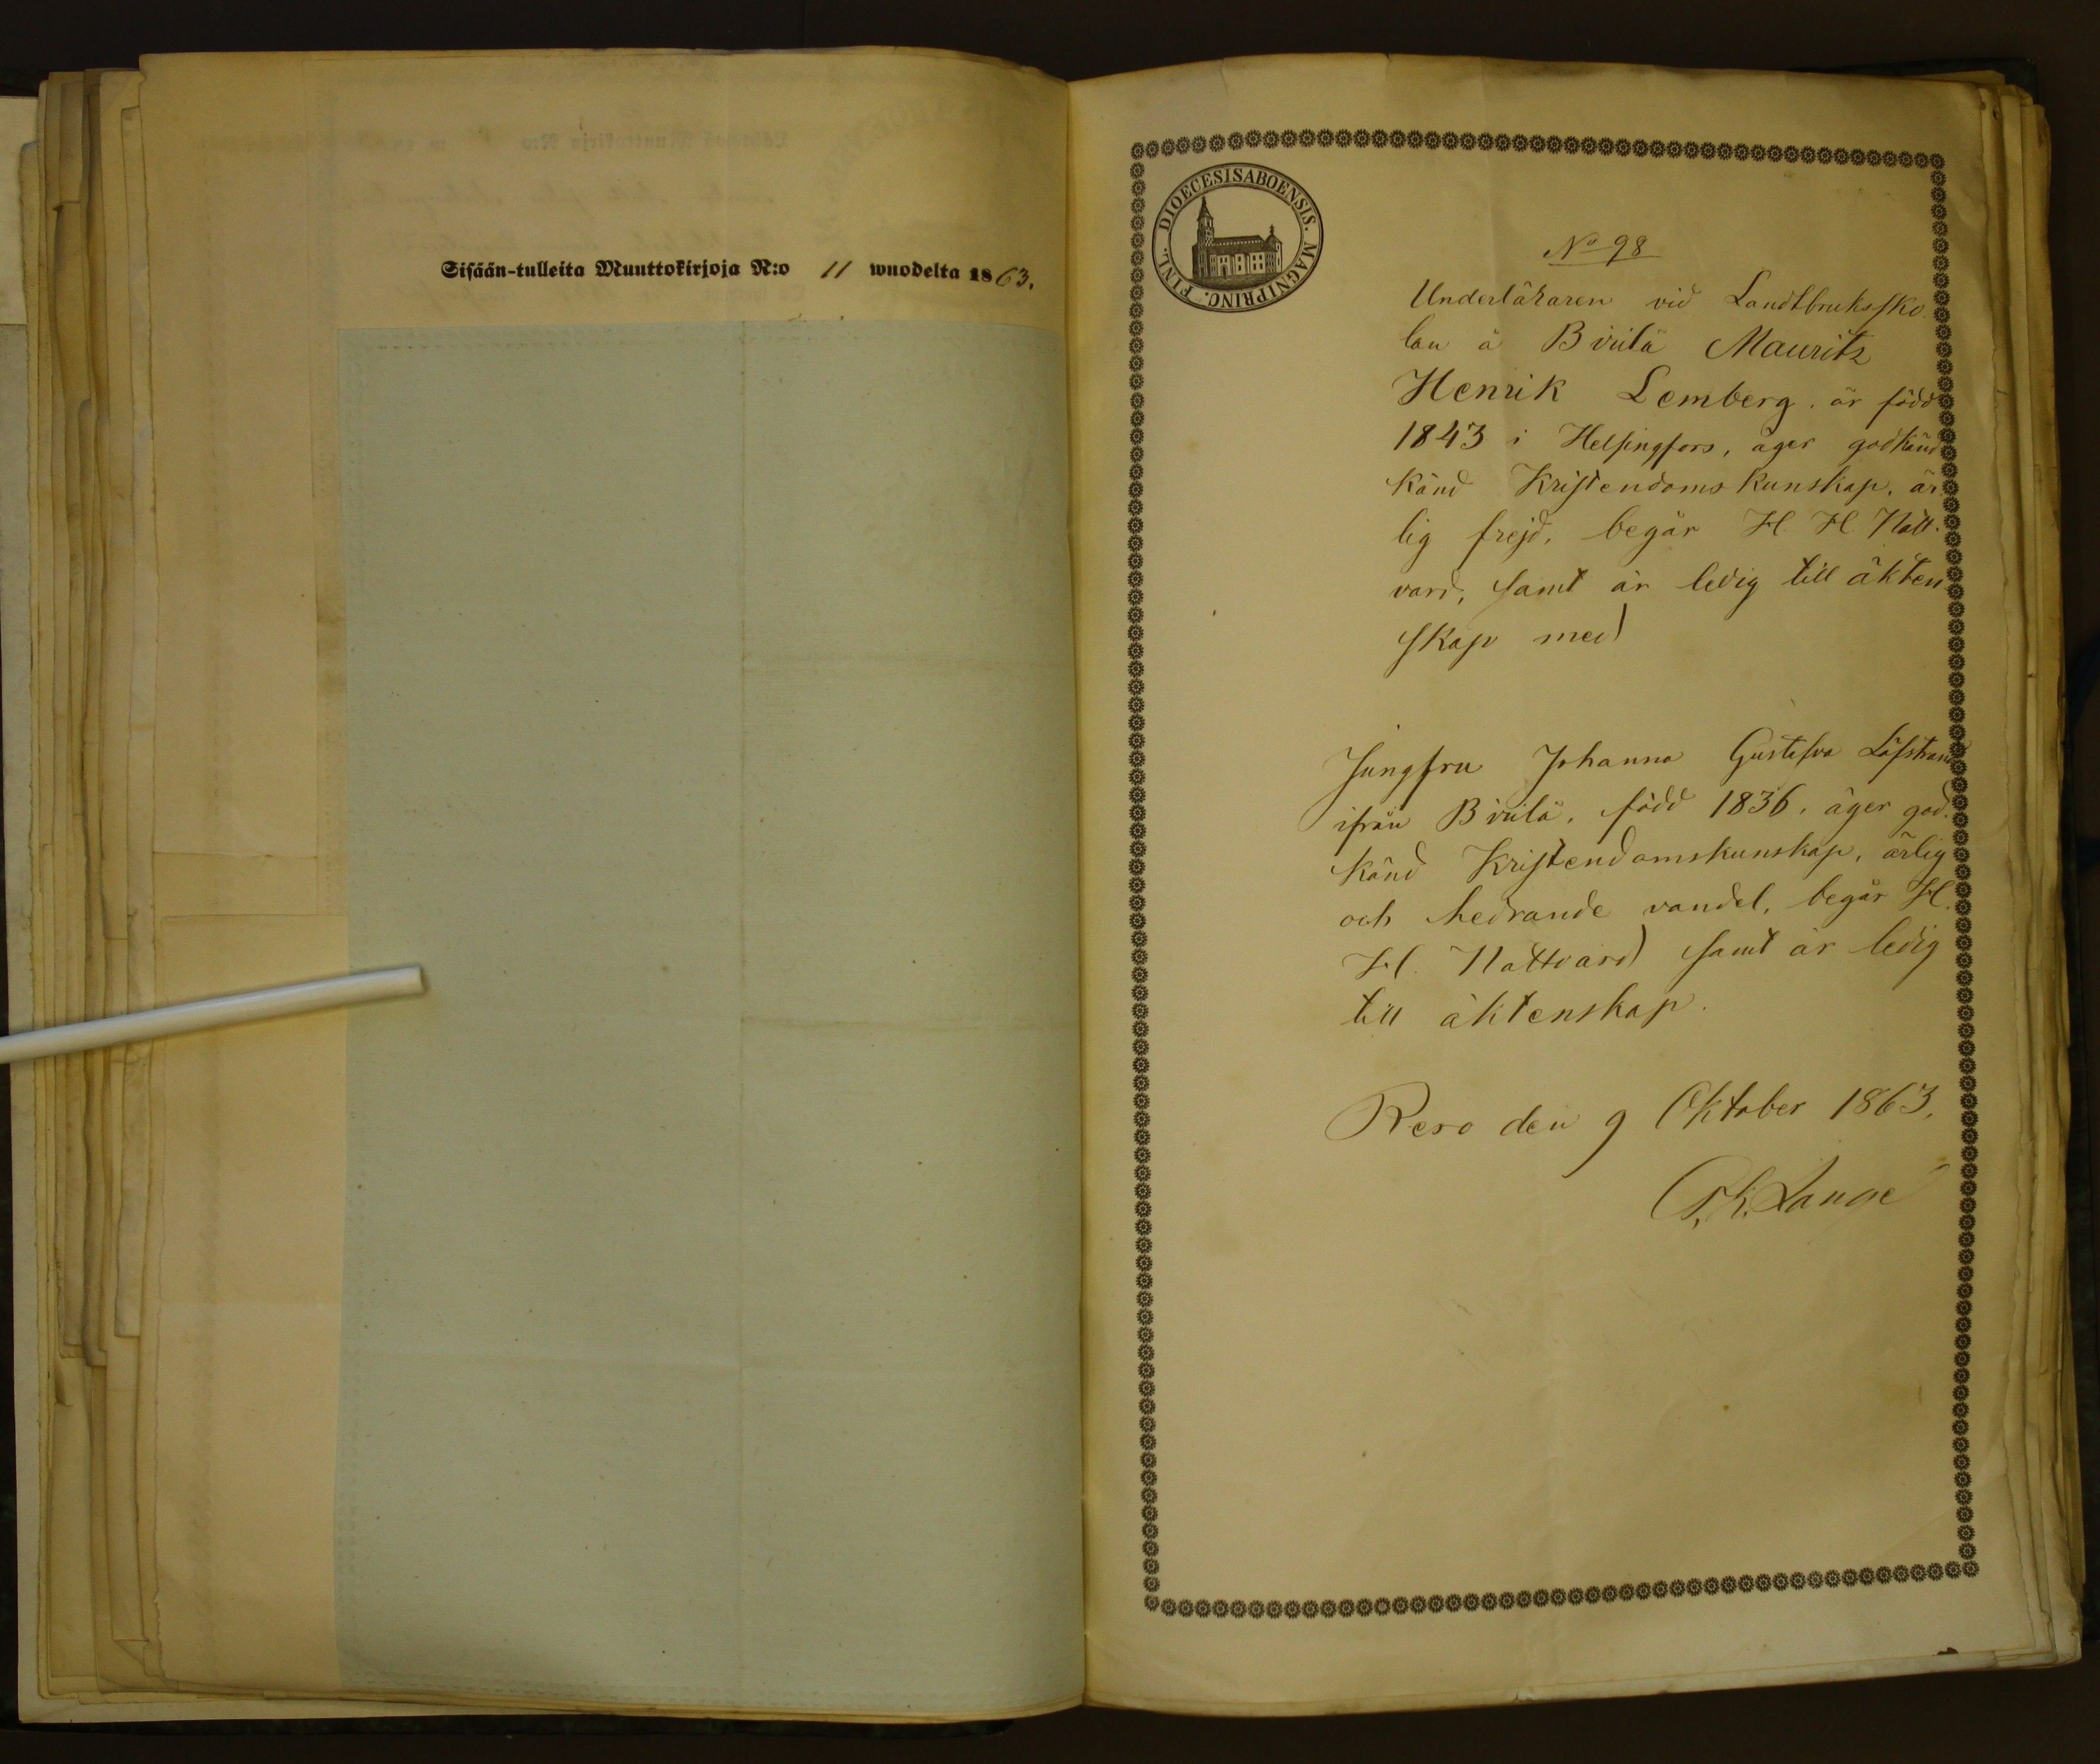 Sisään-tulleita Muuttokirjoja N:o 11 wuodelta 1863.
DIOECESISABOENSIS. MAGNIPRINC. FINL.
No 98
Underläraren vid Landtbrukssko
lan å Bviilä Mauritz
Henrik Lemberg, är född
1843 i Helsingfors, äger godkänd
känd Kristendoms kunskap, är
lig frejd, begår H. H. Natt-
vard, samt är ledig till äkten
skap med
Jungfru Johanna Gustafva Löfstrand
ifrån Bviilä, född 1836, äger god-
känd Kristendomskunskap, ärlig
och hedrande vandel, begår H.
H. Nattvard samt är ledig
till äktenskap.
Reso den 9 Oktober 1863.
Lange